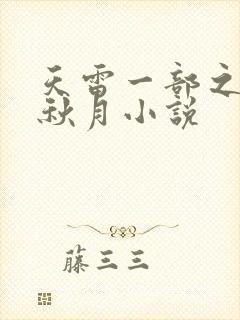 天雷一部之
秋月小說
藤三三